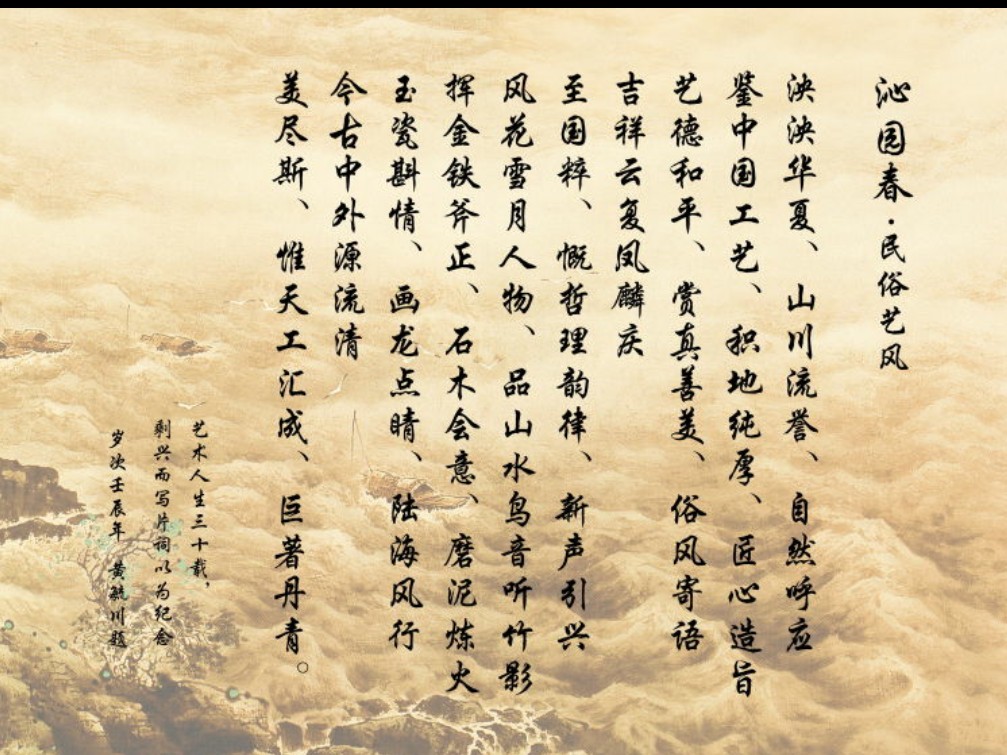 沁园春·民俗艺风
泱泱华夏、山川流誉、自然呼应
鉴中国工艺、积地纯厚、匠心造旨
艺德和平、赏真善美、俗风寄语
吉祥云复凤麟庆
至国粹、慨哲理韵律、新声引兴
风花雪月人物、品山水鸟音听竹影
挥金铁斧正、石木会意、磨泥炼火
玉瓷斟情、画龙点睛、陆海风行
今古中外源流清
美尽斯、惟天工汇成、巨著丹青。
艺术人生三十载，
剩兴而写片词以为纪念
岁次壬辰年 黄毓川题